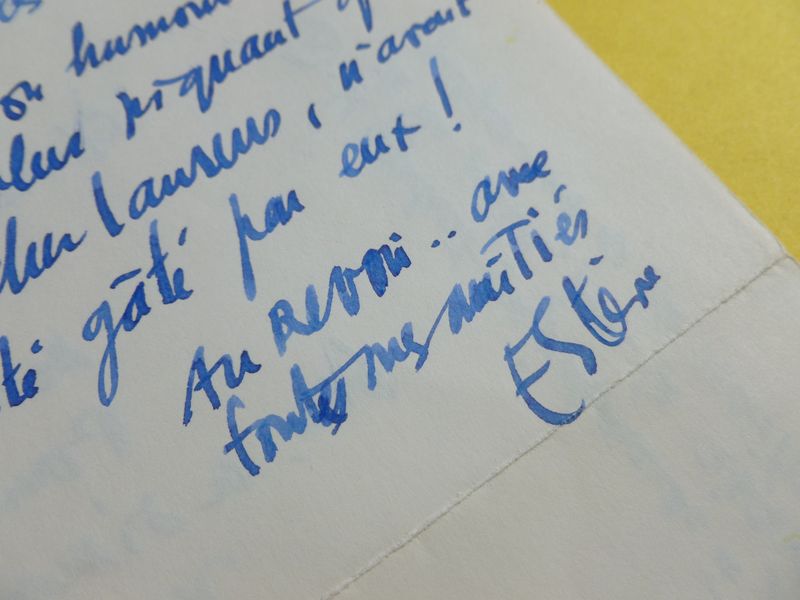 on humour
plus piquant q
cher Laurens, n'avait
té gâté par eux !
Au revoir .. avec
toutes mes amitiés
Estève